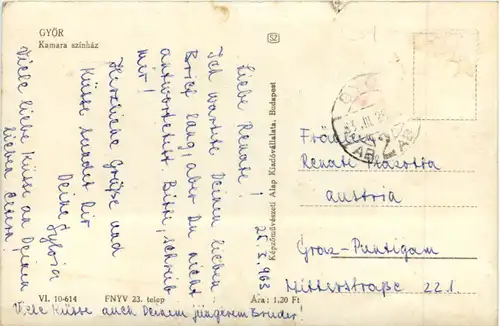 GYŐR
Kamara színház
Liebe Renate!
Ich wartete Deinen lieben
Brief lang, aber Du nicht
antwortetest. Bitte, schreib
mir!
Herzliche Grüße und
Küsse sendet Dir
Deine Sylvia
Viele liebe Küsse an Deinen
lieben Eltern!
Viele Küsse auch Deinem jüngerem Bruder!
VI. 10-614 FNYV 23. telep Ára: 1,20 Ft
Képzőművészeti Alap Kiadóvállalata, Budapest
963
Renate
Austria
Graz-Puntigam
Mitterstraße 221.